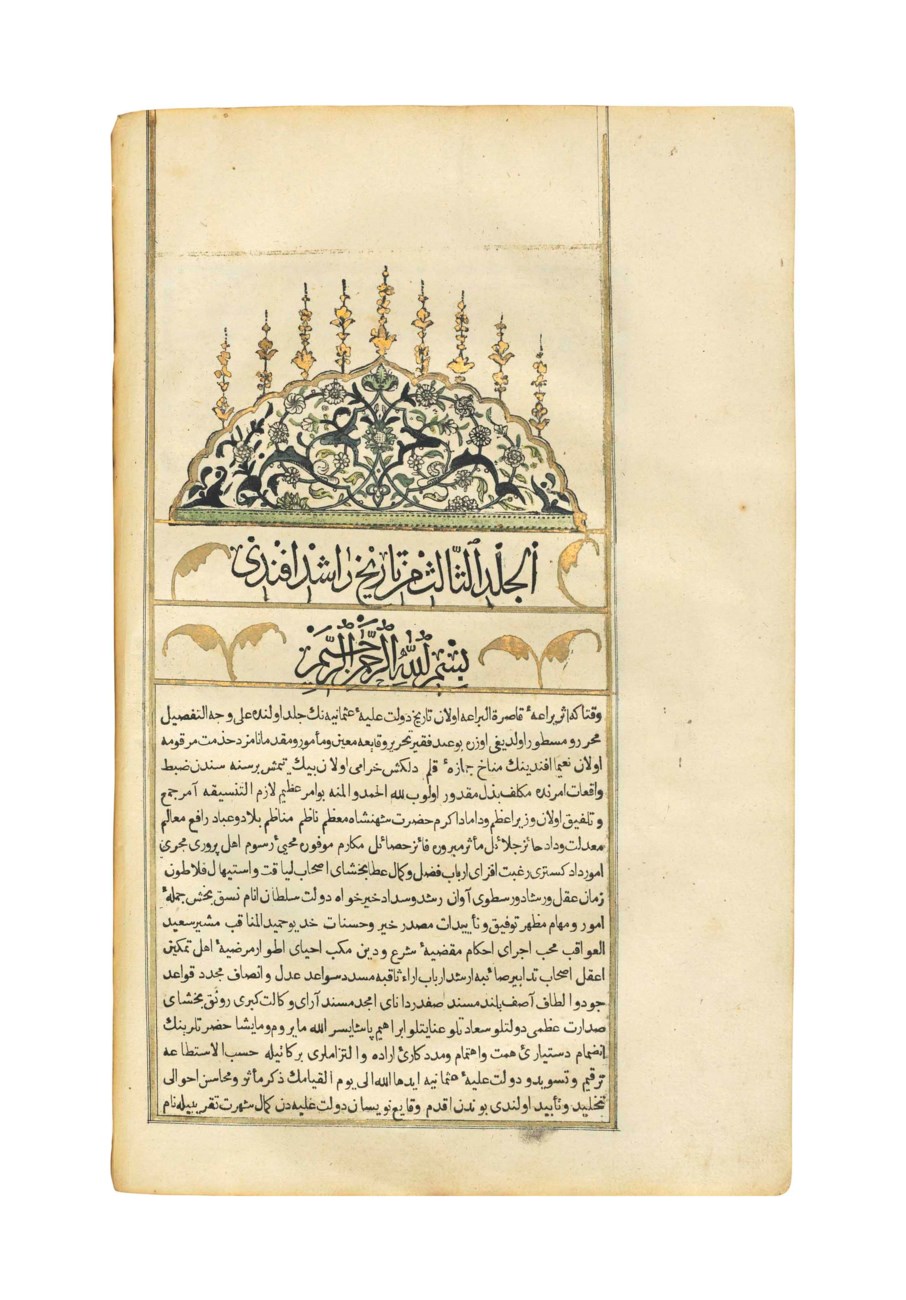 الجلد الثالث من تاريخ راشد افندى
بسم الله الرحمن الرحيم
وقتاكه اثر يراعهٔ قاصرة البراعه اولان تاريخ دولت عليهٔ عثمانيه نك جلد اولنده على وجه التفصيل
محرر و مسطور اولديغى اوزره بو عبد فقير تحرير وقايعه معين و مأمور و مقدمانامزد خدمت مرقومه
اولان نعيما افندينك مناخ جمازهٔ قلم دلكش خرامى اولان بيك يتمش بر سنه سندن ضبط
واقعات امرنده مكلف بذل مقدور اولوب لله الحمد والمنه بو امر عظيم لازم التنسيقه آمر جمع
و تلفيق اولان وزير اعظم و داماد اكرم حضرت شهنشاه معظم ناظم مناظم بلاد و عباد رافع معالم
معدلت و داد حائز جلائل مآثر مبروره فائز خصائل مكارم موفوره محيئ رسوم اهل پرورى مجرئ
امور داد كسترى رغبت افزاى ارباب فضل و كمال عطا بخشاى اصحاب لياقت و استيهال فلاطون
زمان عقل و رشاد رسطوى آوان رشد و سداد خير خواه دولت سلطان انام نسق بخش جملهٔ
امور و مهام مظهر توفيق و تأييدات مصدر خير و حسنات خديو حميد المناقب مشير سعيد
العواقب محب اجراى احكام مقضيهٔ شرع و دين مكب احياى اطوار مرضيهٔ اهل تمكين
اعقل اصحاب تدابير صائبه ارشد ارباب اراء ثاقبه مسدد سواعد عدل و انصاف مجدد قواعد
جود و الطاف آصف بلند مسند صفدر داناى امجد مسند آراى وكالت كبرى رونق بخشاى
صدارت عظمى دولتلو سعادتلو عنايتلو ابراهيم پاشا يسر الله ما يروم و ما يشا حضرتلرينك
انضمام دستيارئ همت و اهتمام و مددكارئ اراده و التزاملرى بركاتيله حسب الاستطاعه
ترقيم و تسويد و دولت عليهٔ عثمانيه ايدها الله الى يوم القيامك ذكر مآثر و محاسن احوالى
تخليد و تأبيد اولندى بوندن اقدم وقايع نويسان دولت عليه دن كمال شهرت تقريبيله نام